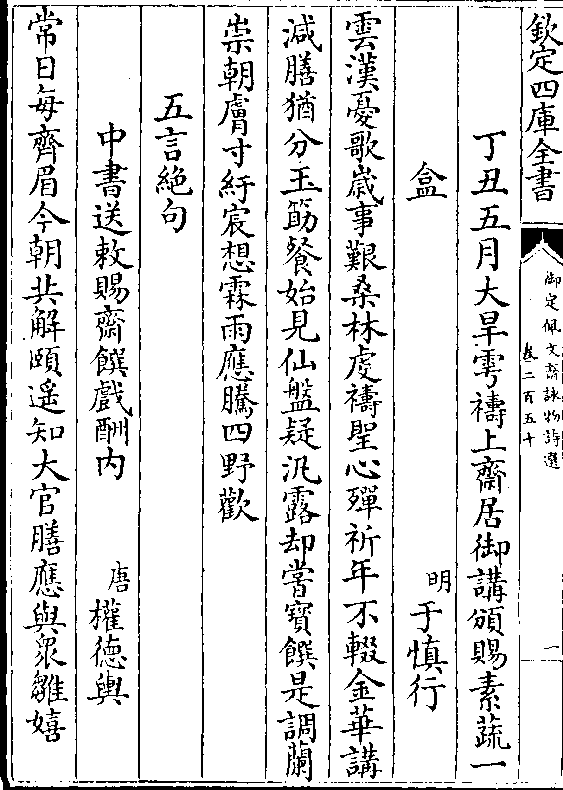 欽定四庫全書
御定佩文齋詠物詩選
卷二百五十
一
丁丑五月大旱雩禱上齋居御講頒賜素蔬一
盒
明于慎行
雲漢憂歌歲事艱桑林虔禱聖心殫祈年不輟金華講
減膳猶分玉筯餐始見仙盤疑汎露却嘗寶饌是調蘭
崇朝膚寸紆宸想霖雨應騰四野歡
五言絶句
中書送敕賜齋饌戲酬内
唐權德輿
常日每齊眉今朝共解頤遥知大官膳應與衆雛嬉